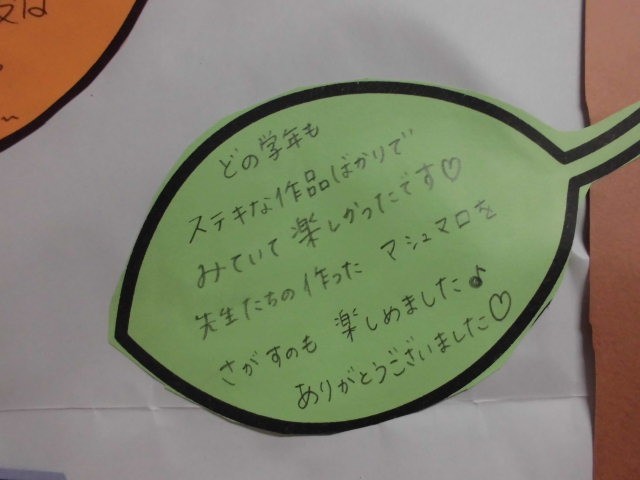 どの学年も
ステキな作品ばかりで
みていて楽しかったです♡
先生たちの作った マシュマロを
さがすのも 楽しめました♪
ありがとうございました♡
は